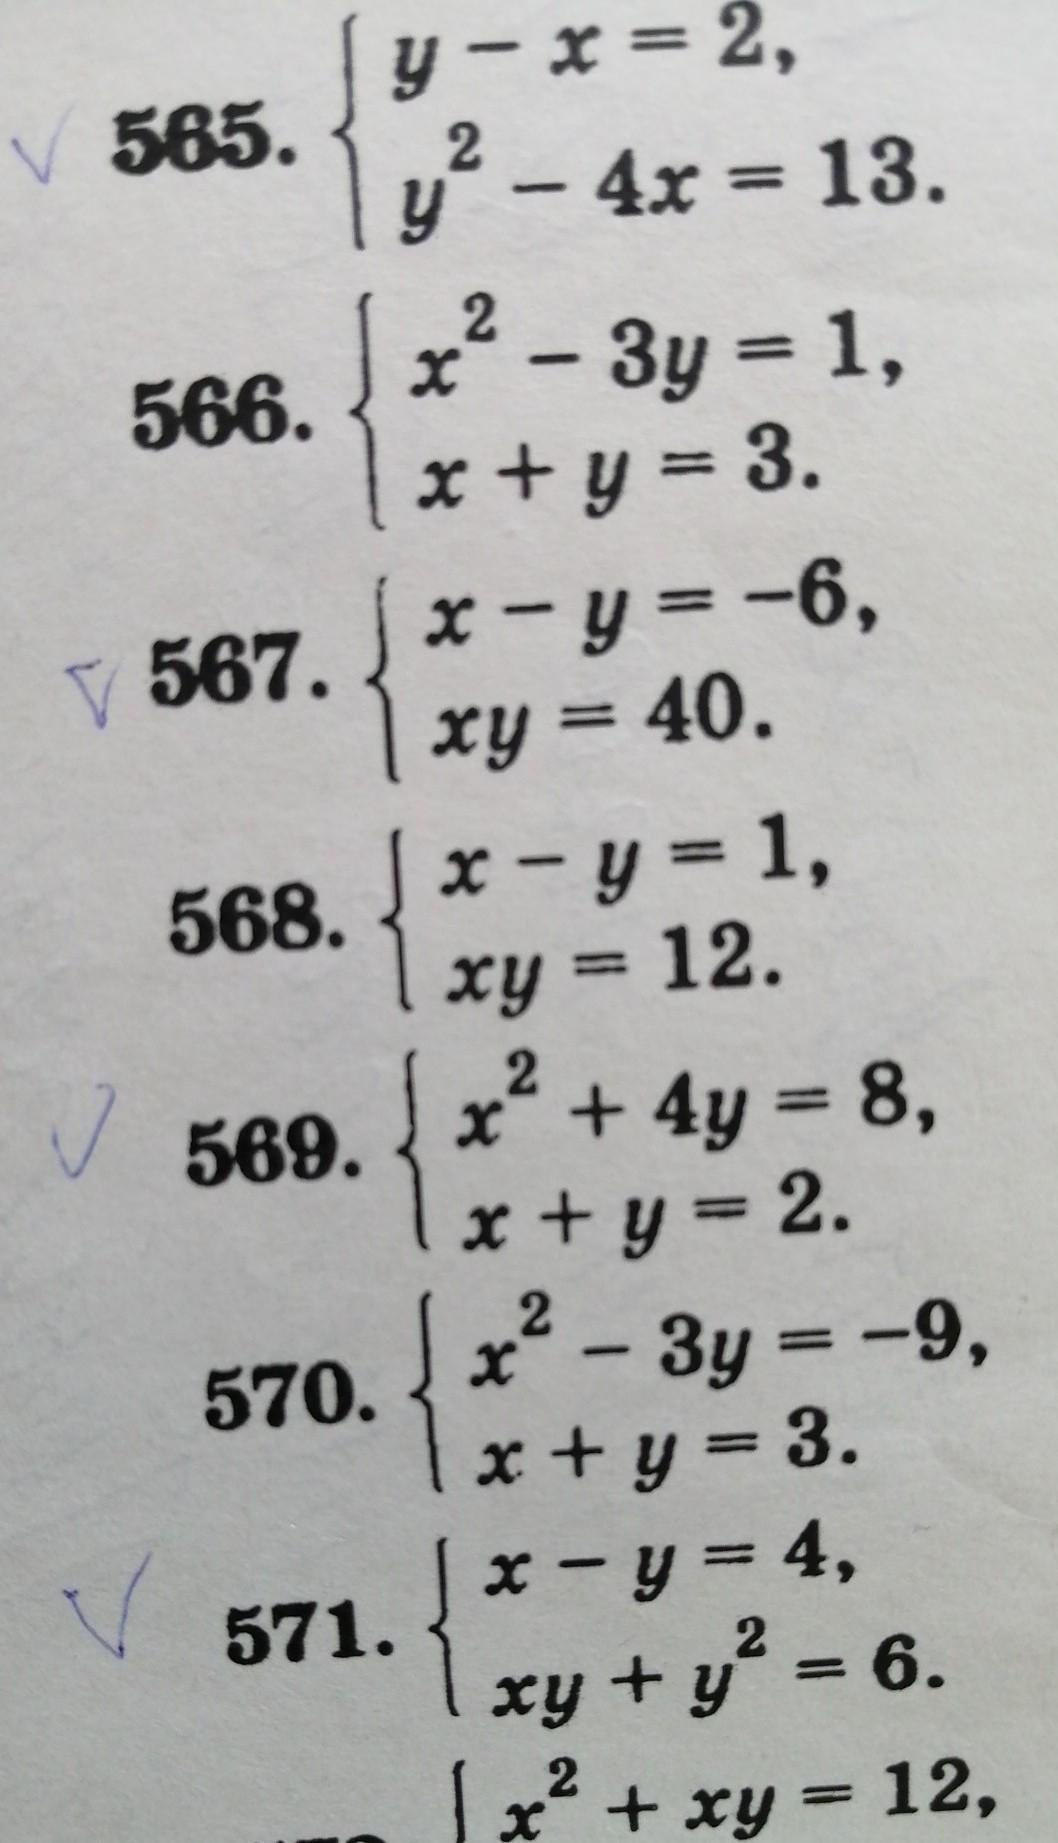 565. { y − x = 2,
y² − 4x = 13.
566. { x² − 3y = 1,
x + y = 3.
567. { x − y = −6,
xy = 40.
568. { x − y = 1,
xy = 12.
569. { x² + 4y = 8,
x + y = 2.
570. { x² − 3y = −9,
x + y = 3.
571. { x − y = 4,
xy + y² = 6.
{ x² + xy = 12,